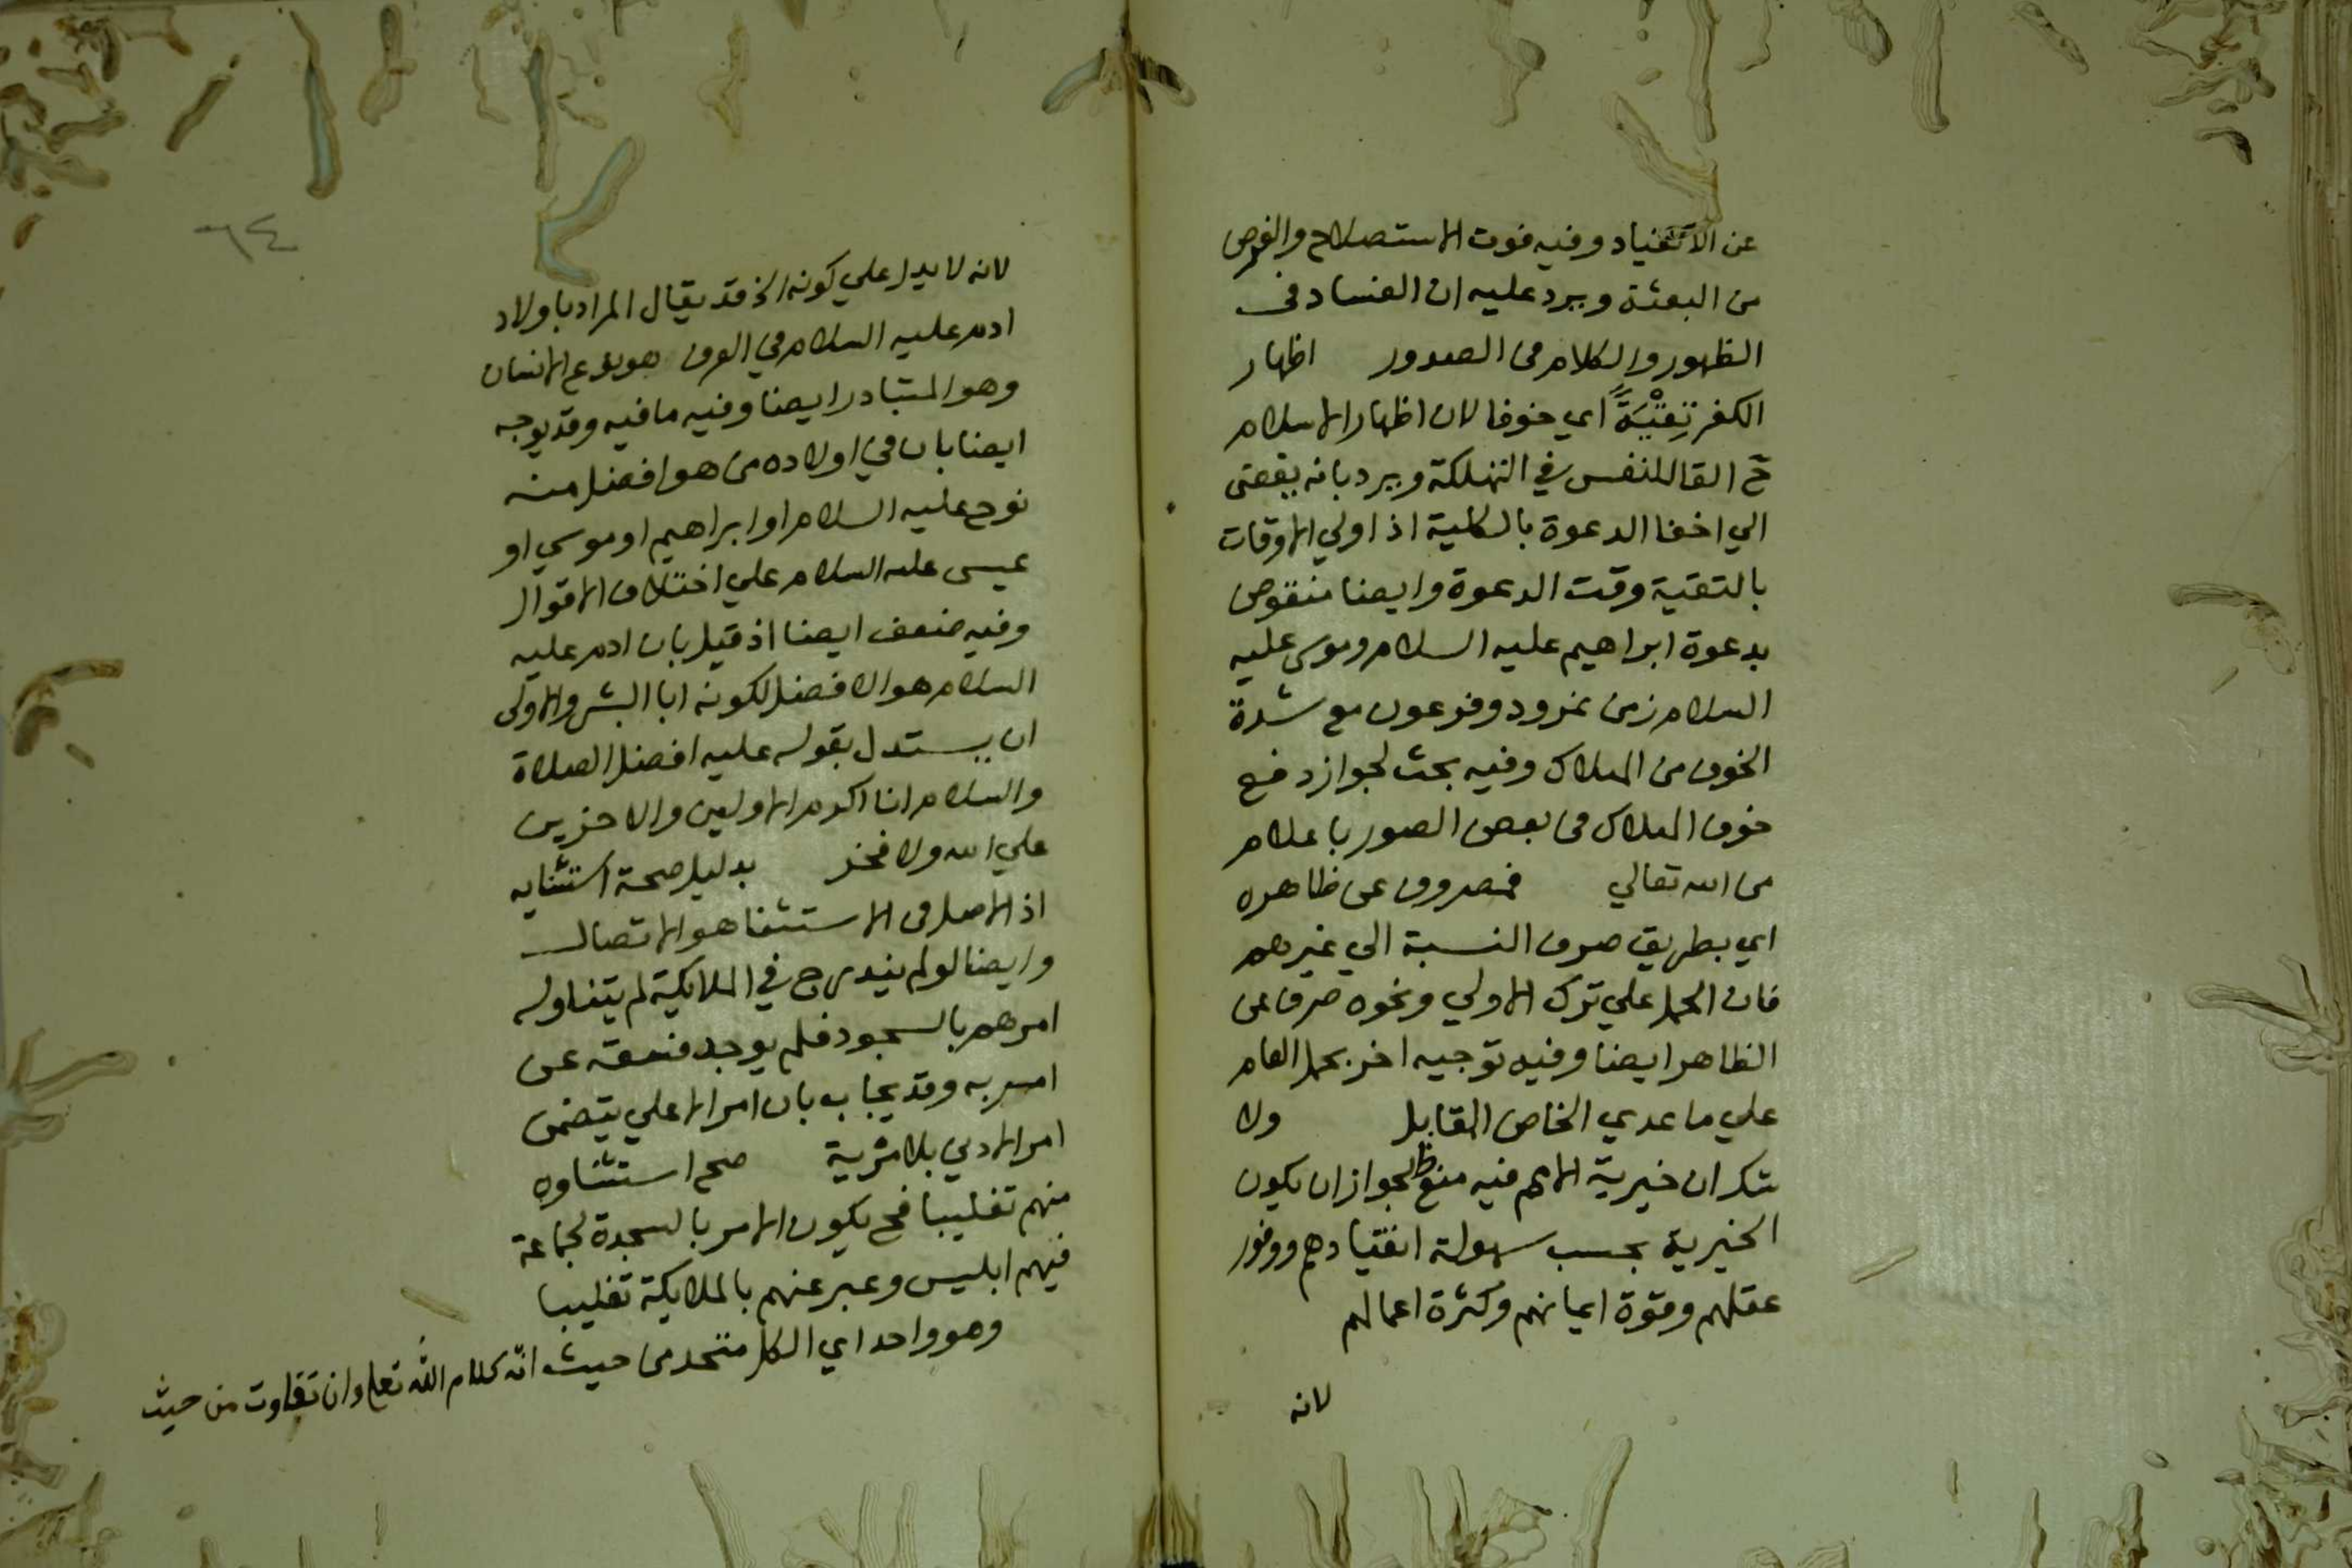 عن الانقياد وفيه فوت الاستصلاح والغرض
من البعثة ويرد عليه ان الفساد في
الظهور والكلام في الصدور اظهار
الكفر تَقِيَّةً اي خوفا لان اظهار الاسلام
ح القا للنفس في التهلكة ويرد بانه يفضى
الي اخفا الدعوة بالكلية اذ اولي الاوقات
بالتقية وقت الدعوة وايضا منقوض
بدعوة ابراهيم عليه السلام وموسى عليه
السلام زمن نمرود وفرعون مع شدة
الخوف من الهلاك وفيه بحث لجواز دفع
خوف الهلاك في بعض الصور باعلام
من الله تعالي فمصروف عن ظاهره
اي بطريق صرف النسبة الي غيرهم
فان الحمل علي ترك الاولي ونحوه صرف عن
الظاهر ايضا وفيه توجيه اخر بحمل العام
علي ما عدي الخاص المقابل ولا
شك ان خيرية الامم فيه منع ظ لجواز ان يكون
الخيرية بحسب سهولة انقيادهم ووفور
عقلهم وقوة ايمانهم وكثرة اعمالهم
لانه
٦٤
لانه لا يدل علي كونه الخ قد يقال المراد باولاد
ادم عليه السلام في العرف هو نوع الانسان
وهو المتبادر ايضا وفيه ما فيه وقد يوجه
ايضا بان في اولاده من هو افضل منه
نوح عليه السلام او ابراهيم او موسي او
عيسى عليه السلام علي اختلاف الاقوال
وفيه ضعف ايضا اذ قيل بان ادم عليه
السلام هو الافضل لكونه ابا البشر والاولى
ان يستدل بقوله عليه افضل الصلاة
والسلام انا اكرم الاولين والاخرين
علي الله ولا فخر بدليل صحة استثنايه
اذ الاصل في الاستثنا هو الاتصال
وايضا لو لم يندرج في الملايكة لم يتناوله
امرهم بالسجود فلم يوجد فسقه عن
امر ربه وقد يجاب بان امر الاعلي يتضمن
امر الادني بلا مرية صح استثناوه
منهم تغليبا فح يكون الامر بالسجدة لجماعة
فيهم ابليس وعبر عنهم بالملايكة تغليبا
وهو واحد اي الكل متحد من حيث انّه كلام اللّه تعا وان تفاوت من حيث